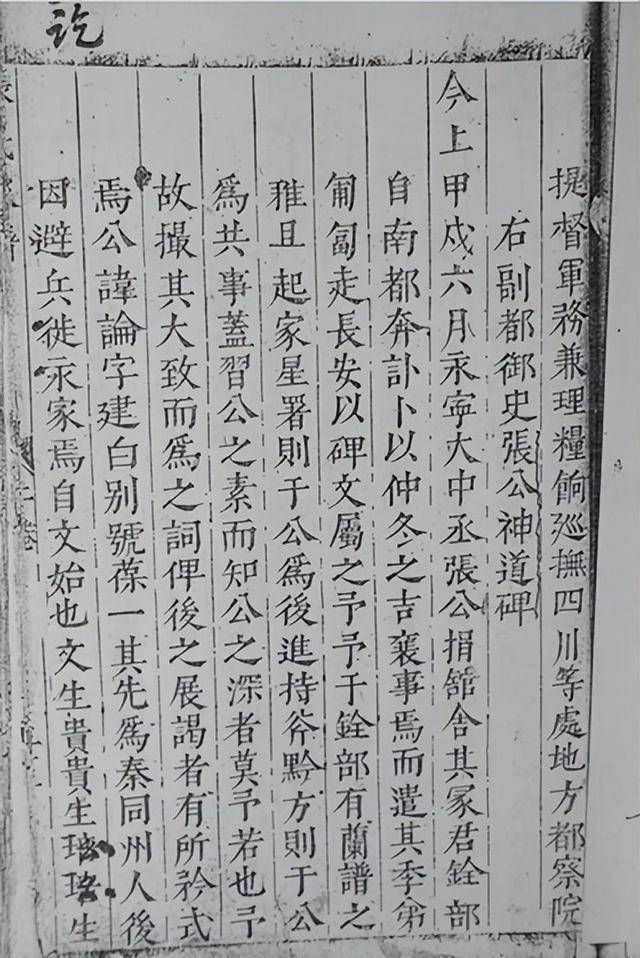 訖
提督軍務兼理糧餉廵撫四川等處地方都察院
右副都御史張公神道碑
今上甲戍六月永寧大中丞張公捐舘舍其冡君銓部
自南都奔訃卜以仲冬之吉襄事焉而遣其季弟
匍匐走長安以碑文屬之予予于銓部有蘭譜之
雅且起家星署則于公爲後進持斧黔方則于公
爲共事蓋習公之素而知公之深者莫予若也予
故撮其大致而爲之詞俾後之展謁者有所矜式
焉公諱論字建白别號葆一其先爲秦同州人後
因避兵徙永家焉自文始也文生貴貴生珤珤生